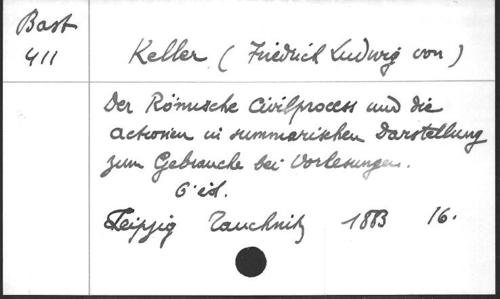 Bast
411
Keller (Friedrich Ludwig von)
Der Römische Civilprocess und die
actionen in summarischen Darstellung
zum Gebrauche bei Vorlesungen.
6 ed.
Leipzig Tauchnitz 1883 16.